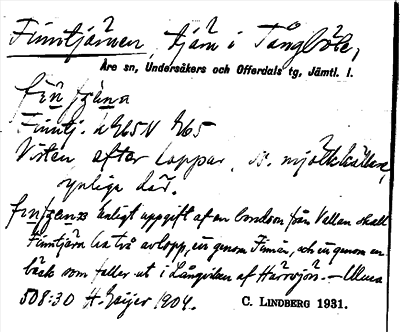 Finntjärnen, tjärn i Tångböle,
Åre sn, Undersåkers och Offerdals tg, Jämtl. l.
Finntj. 65 V 65
Visten efter lappar, s. mjölkkällare,
synliga där.
enligt uppgift af en bondson från Vallan skall
Finntjärn ha två avlopp, en genom Finnån, och en genom en
bäck som faller ut i Långviken af Härrsjön. – Ullna
508:30 H. Geijer 1904. C. LINDBERG 1931.